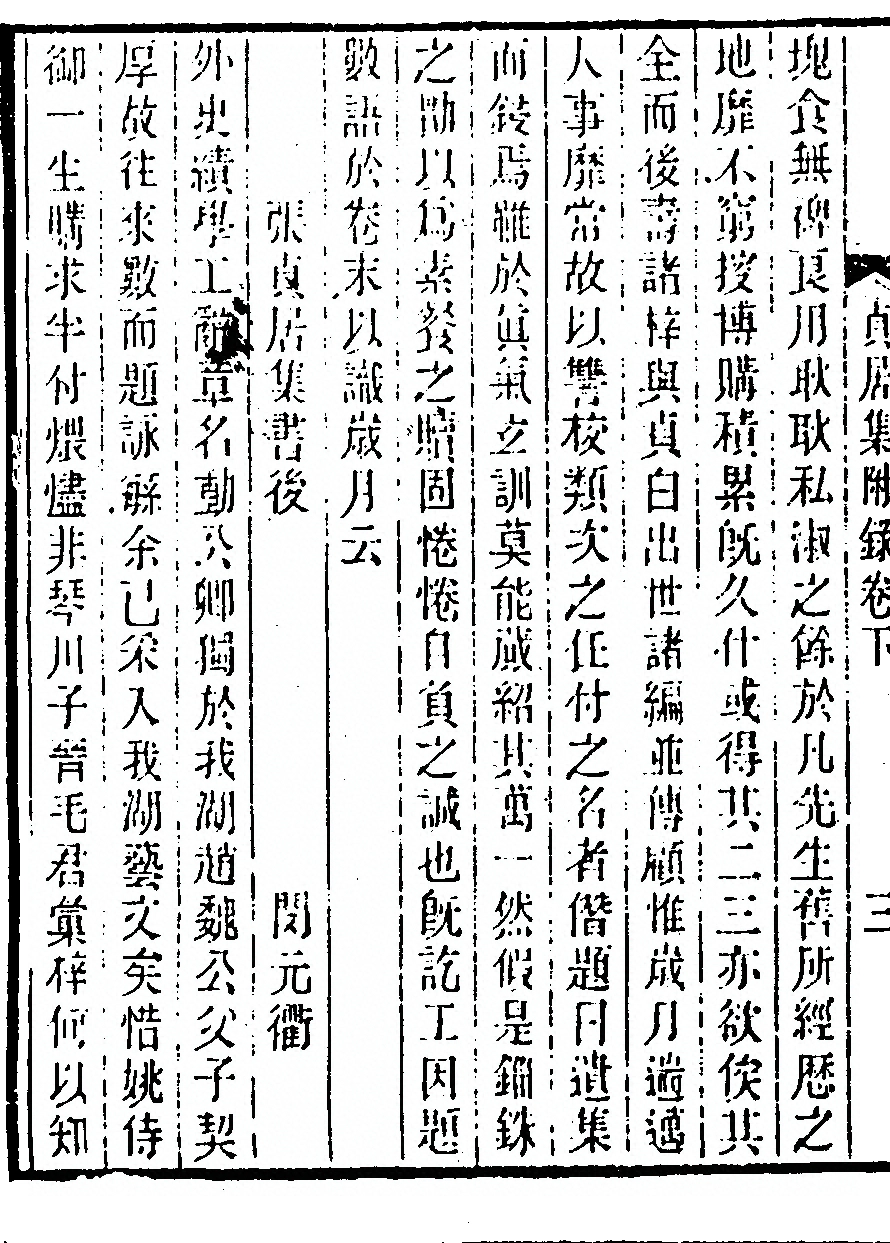 貞居集附錄卷下 三
塊食無裨良用耿耿私淑之餘於凡先生舊所經歷之
地靡不窮搜博購積累旣久什或得其二三亦欲俟其
全而後壽諸梓與貞白出世諸編並傳顧惟歲月遒邁
人事靡常故以讐校類次之任付之名者偕題曰遺集
而鋟焉雖於眞氣玄訓莫能葳紹其萬一然假是錙銖
之勛以爲素餐之贖固惓惓自負之誠也旣訖工因題
數語於卷末以識歲月云
張貞居集書後 閔元衢
外史績學工辭章名動公卿獨於我湖趙魏公父子契
厚故往來數而題詠繇余已采入我湖藝文矣惜姚侍
御一生購求半付煨燼非琴川子晉毛君彙梓何以知